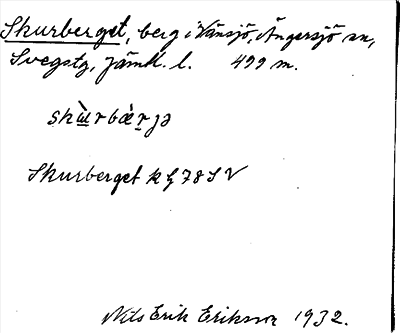 Skurberget, berg i Vänsjö, Ängersjö sn,
Svegstg, Jämtl. l. 499 m.
skùrbæ̀rjə
Skurberget k G 78 S V
Nils Erik Eriksson 1932.